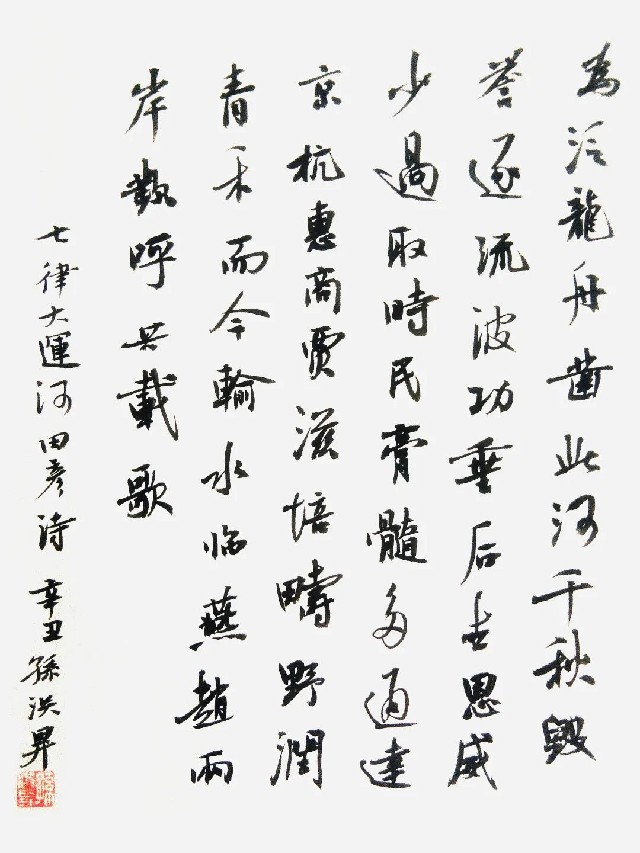 為泛龍舟凿此河千秋毁
誉逐流波功垂后世恩威
少過取時民膏髓多通達
京杭惠商賈滋培疇野潤
青禾而今輸水临燕趙兩
岸歡呼共載歌
七律大運河田彦诗 辛丑孫洪昇